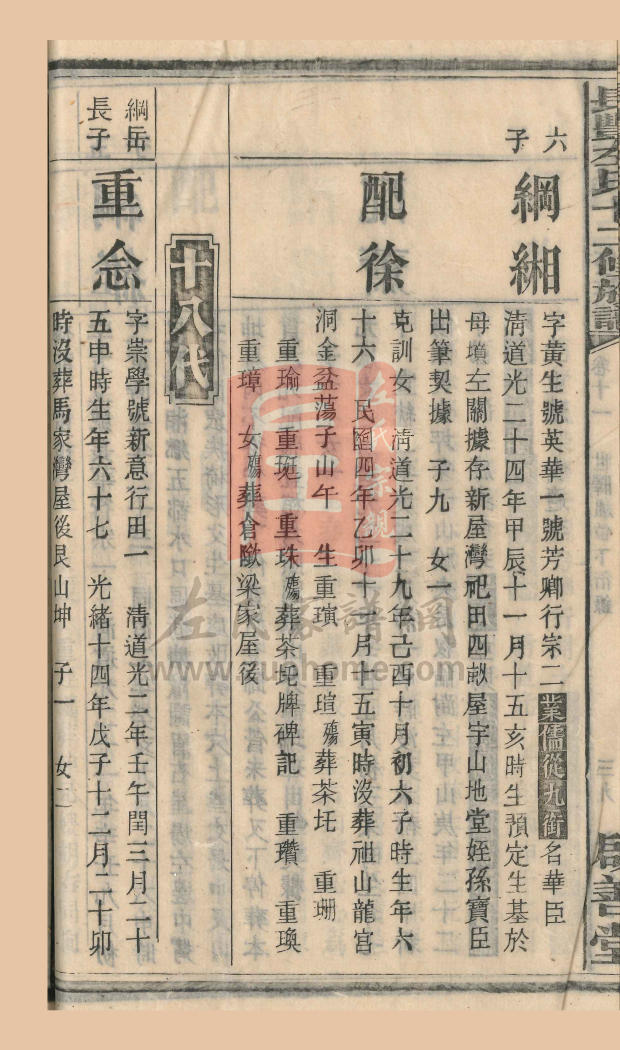 長豐左氏十二修族譜
卷十一
三九
善堂
六
子
綱緗
字黃生號英華一號芳卿行宗二業儒從九銜名華臣
清道光二十四年甲辰十一月十五亥時生預定生基於
母墳左關據存新屋灣祀田四畝屋宇山地堂姪孫寶臣
出筆契據 子九 女一
配徐
克訓女 清道光二十九年己酉十月初六子時生年六
十六 民國四年乙卯十一月十五寅時沒葬祖山龍宮
洞金盆蕩子山午 生重璌 重瑄殤葬茶坵 重珊
重瑜 重珽 重珠殤葬茶坵牌碑記 重瓚 重瑍
重璋 女殤葬倉歐梁家屋後
十八代
綱岳
長子
重念
字崇學號新意行田一 清道光二年壬午閏三月二十
五申時生年六十七 光緒十四年戊子十二月二十卯
時沒葬馬家灣屋後艮山坤 子一 女二
左氏家譜網